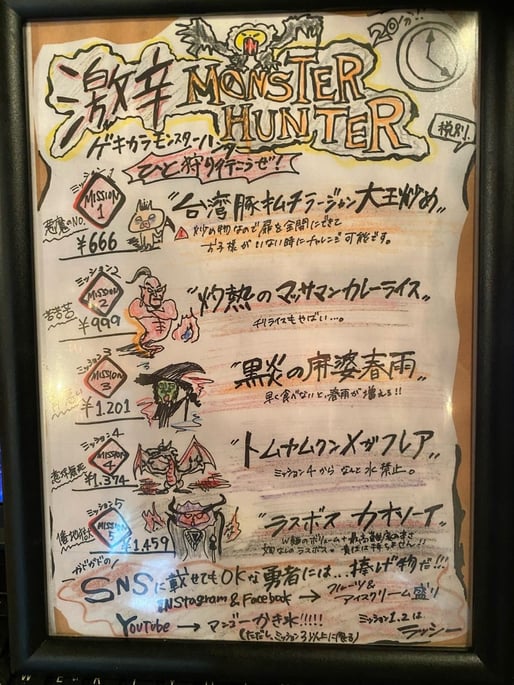 20分!!
激辛 MONSTER HUNTER
ゲキカラモンスターハンター
税別
ひと狩りイテこうぜ!
ミッション1
MISSION 1
悪魔のNO.
¥666
"台湾豚キムチラージャン大王炒め"
炒め物なので扉を全開にできて
お子様がいない時にチャレンジ可能です。
ミッション2
MISSION 2
苦苦苦
¥999
"灼熱のマッサマンカレーライス"
チリライスもやばい…。
ミッション3
MISSION 3
¥1.201
"黒炎の麻婆春雨"
早く食べないと、春雨が増える!!
ミッション4
MISSION 4
¥1.374
"トムヤムクンメガフレア"
ミッション4からなんと水禁止。
ミッション5
MISSION 5
¥1.459
"ラスボス カオソーイ"
W麺のボリューム+最高難度の辛さ
SNSに載せてもOKな勇者には…捧げ物だ!!!
INStagram & Facebook → フルーツ&アイスクリーム盛り
YouTube → マンゴーかき氷!!!!!
(ただし、ミッション3以上に限る)
ミッション1.2は
ラッシー